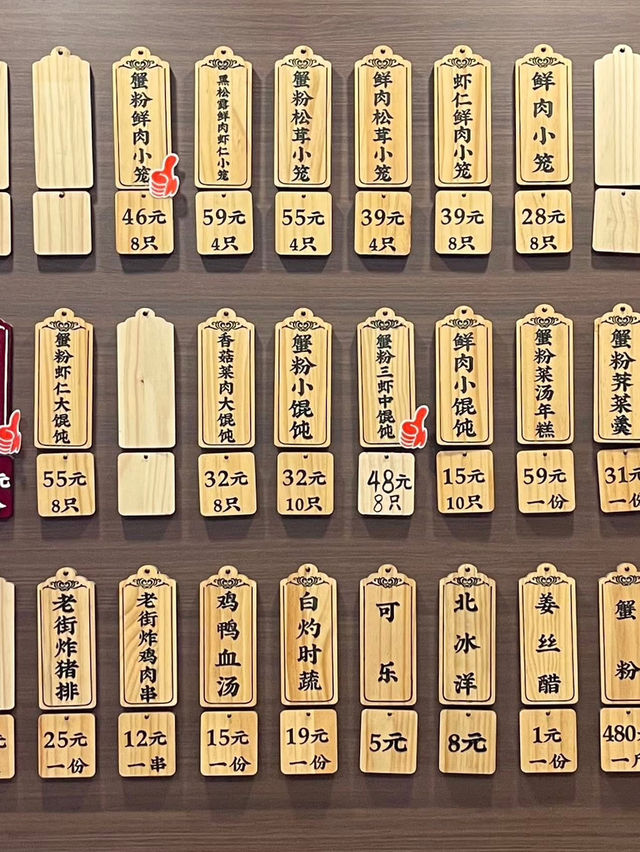 蟹粉鲜肉小笼
46元
8只
黑松露鲜肉虾仁小笼
59元
4只
蟹粉松茸小笼
55元
4只
鲜肉松茸小笼
39元
4只
虾仁鲜肉小笼
39元
8只
鲜肉小笼
28元
8只
元
蟹粉虾仁大馄饨
55元
8只
香菇菜肉大馄饨
32元
8只
蟹粉小馄饨
32元
10只
蟹粉三虾中馄饨
48元
8只
鲜肉小馄饨
15元
10只
蟹粉菜汤年糕
59元
一份
蟹粉荠菜羹
31元
一份
元
老街炸猪排
25元
一份
老街炸鸡肉串
12元
一串
鸡鸭血汤
15元
一份
白灼时蔬
19元
一份
可乐
5元
北冰洋
8元
姜丝醋
1元
一份
蟹粉
480元
一斤